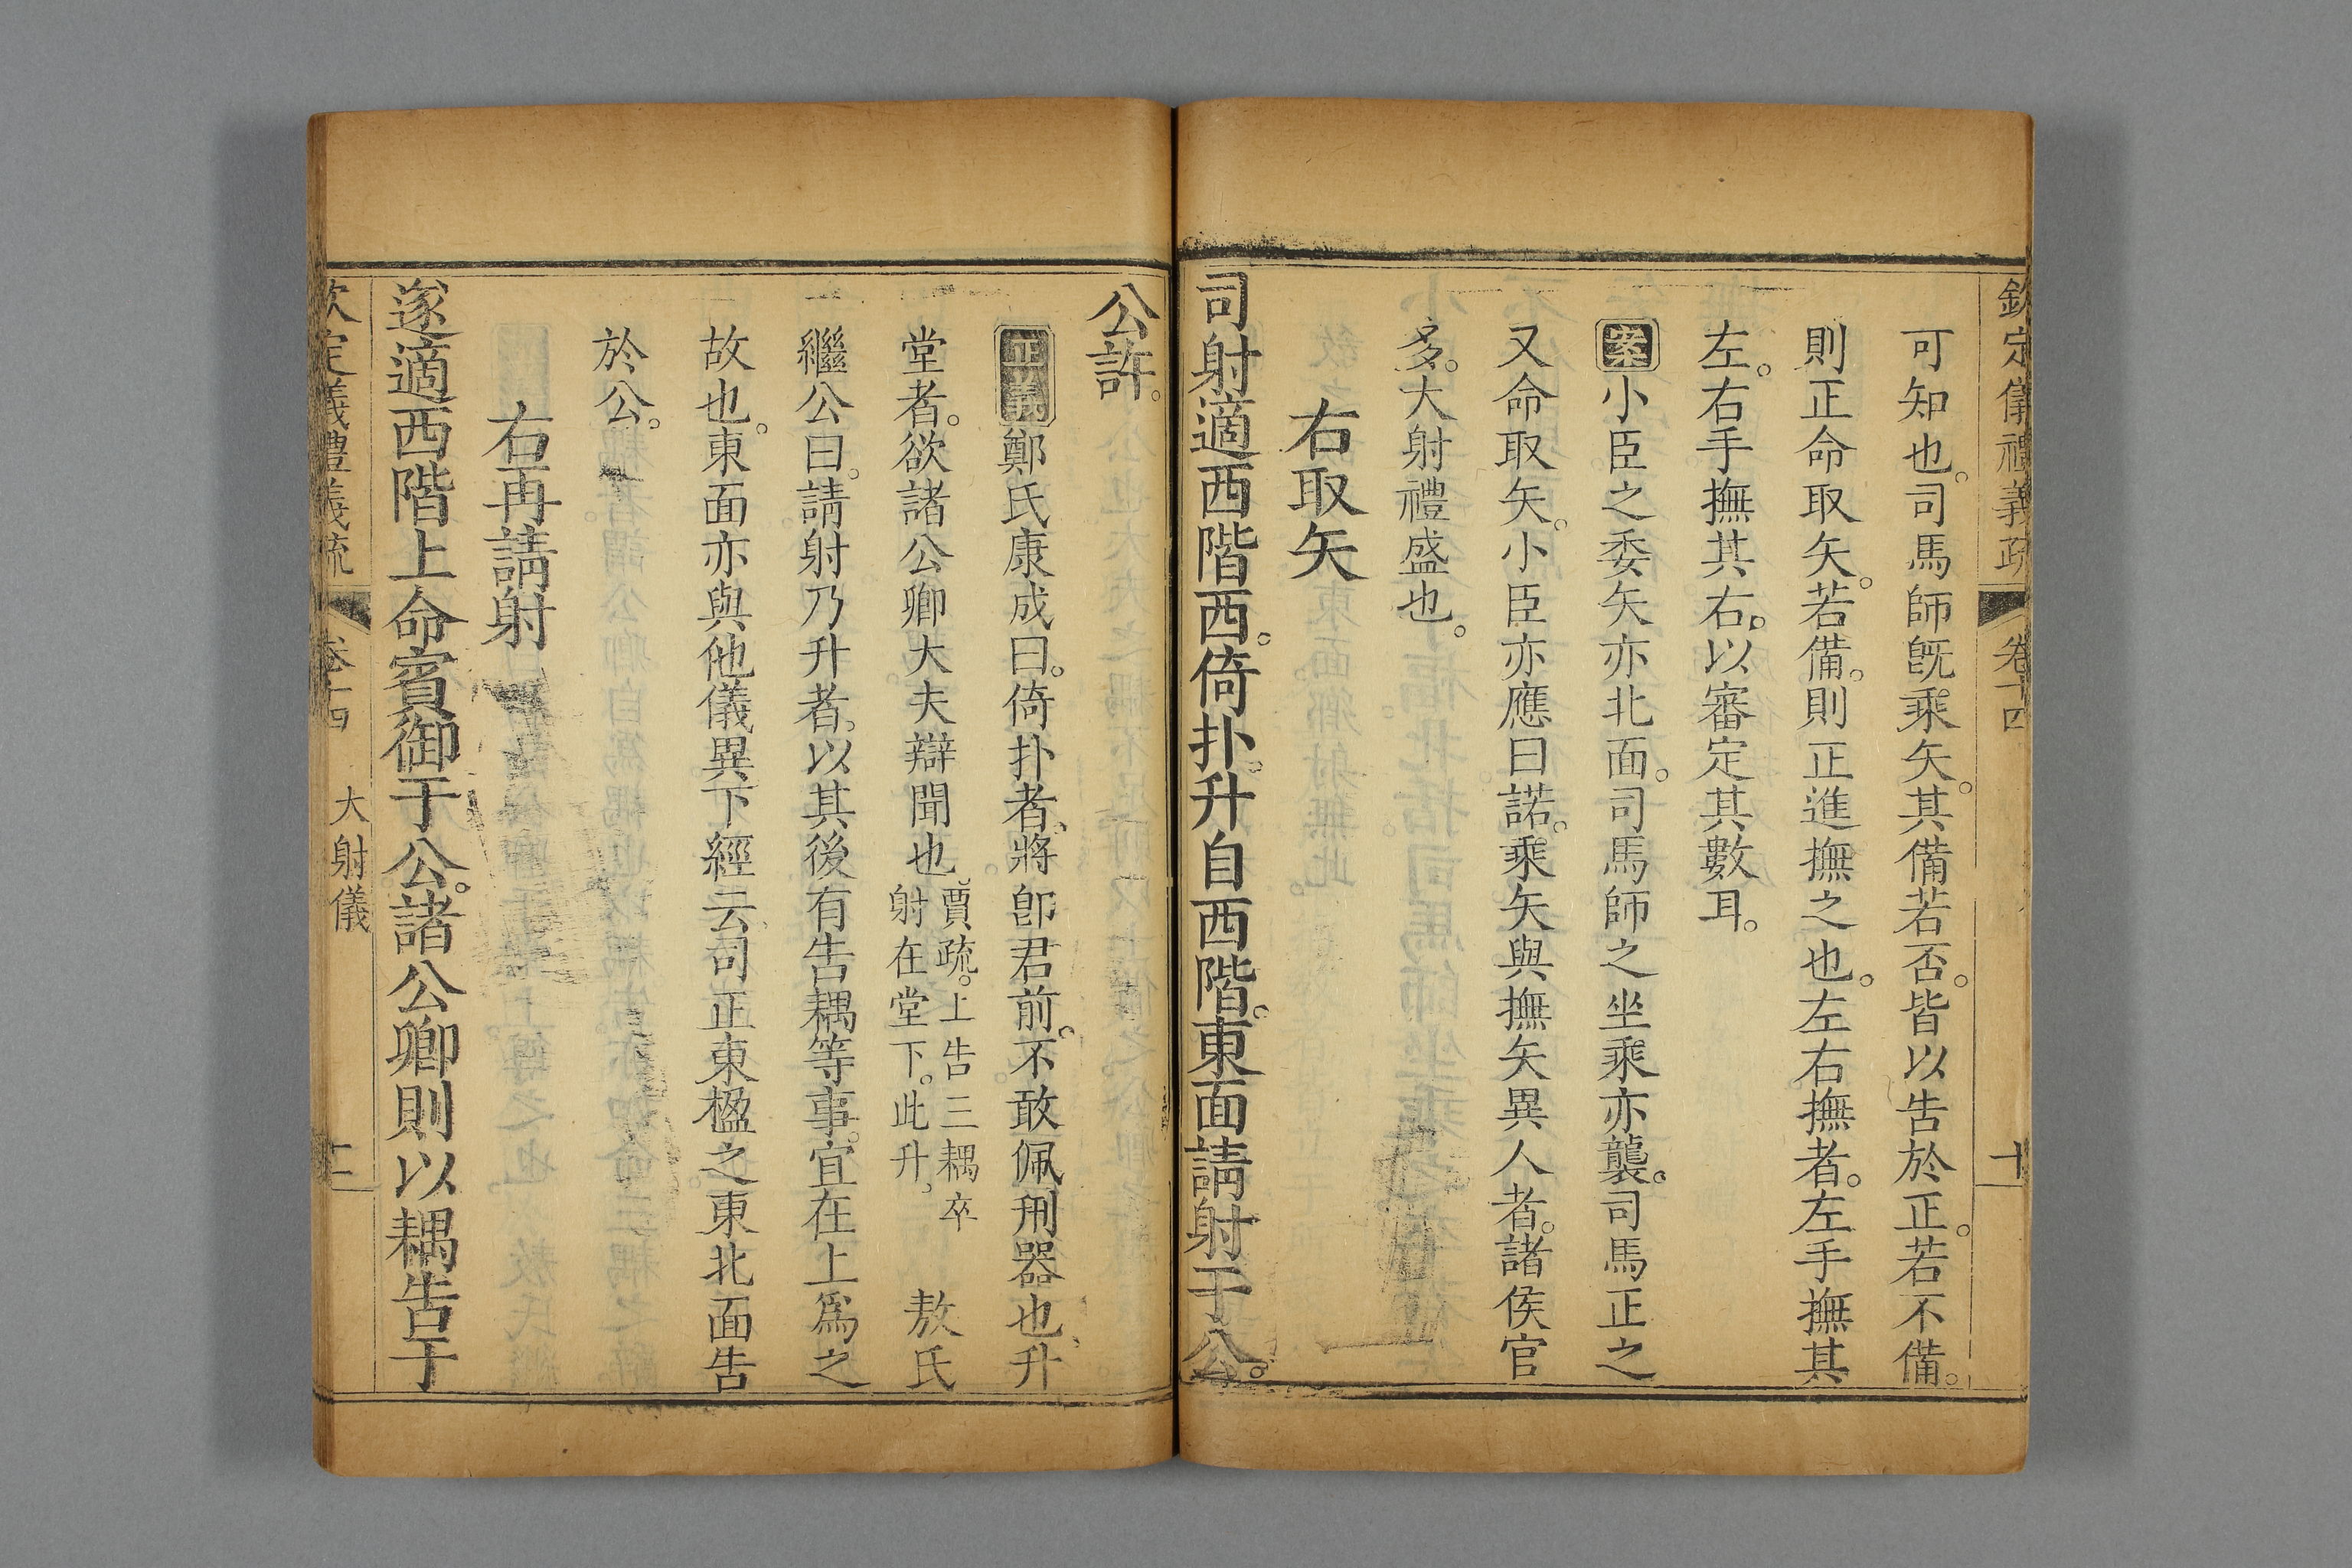 欽定儀禮義疏 卷十四 十
可知也。司馬師旣乘矢。其備若否。皆以告於正。若不備。
則正命取矢。若備。則正進撫之也。左右撫者。左手撫其
左。右手撫其右。以審定其數耳。
案小臣之委矢亦北面。司馬師之坐乘亦襲。司馬正之
又命取矢。小臣亦應曰諾。乘矢與撫矢異人者。諸侯官
多。大射禮盛也。
右取矢
司射適西階西。倚扑。升自西階。東面請射于公。
公許。
正義鄭氏康成曰。倚扑者、將卽君前。不敢佩刑器也、升
堂者。欲諸公卿大夫辯聞也。
賈疏。上告三耦卒
射在堂下。此升、
敖氏
繼公曰。請射乃升者。以其後有告耦等事。宜在上爲之
故也。東面亦與他儀異。下經云司正東楹之東北面告
於公。
右再請射
遂適西階上命賓御于公。諸公卿則以耦告于
欽定儀禮義疏 卷十四 大射儀